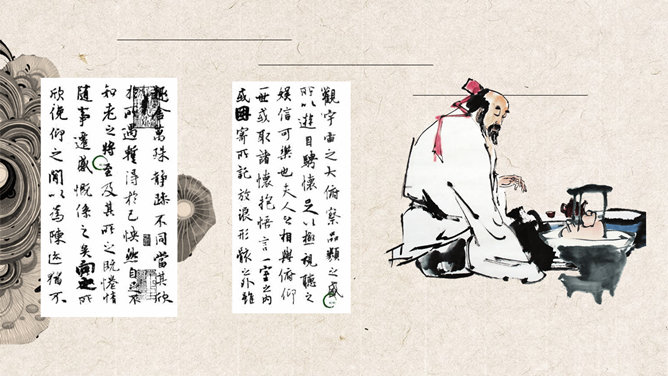 觀宇宙之大俯察品類之盛
所以遊目騁懷足以極視聽之
娛信可樂也夫人之相與俯仰
一世或取諸懷抱悟言一室之內
或因寄所託放浪形骸之外雖
趣舍萬殊靜躁不同當其欣
於所遇暫得於己怏然自足不
知老之將至及其所之既惓情
隨事遷感慨係之矣向之所
欣俛仰之間以為陳迹猶不